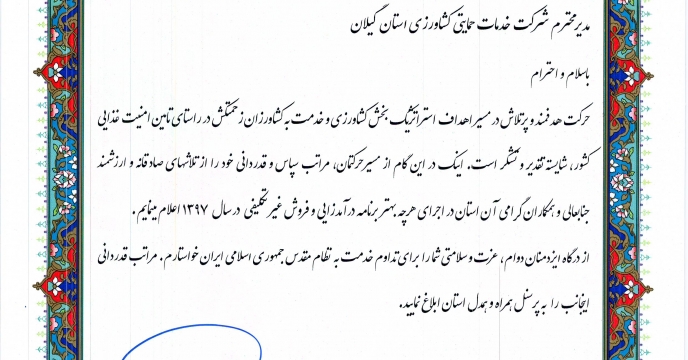 مدیر محترم شرکت خدمات حمایتی کشاورزی استان گیلان
باسلام و احترام
حرکت هدفمند و پرتلاش در مسیر اهداف استراتژیک بخش کشاورزی و خدمت به کشاورزان زحمتکش در راستای تامین امنیت غذایی
کشور، شایسته تقدیر و تشکر است. اینک در این گام از مسیر حرکتمان، مراتب سپاس و قدردانی خود را از تلاشهای صادقانه و ارزشمند
جنابعالی و همکاران گرامی آن استان در اجرای هرچه بهتر برنامه درآمدزایی و فروش غیر تکلیفی در سال ۱۳۹۷ اعلام مینمایم.
از درگاه ایزدمنان دوام، عزت و سلامتی شما را برای تداوم خدمت به نظام مقدس جمهوری اسلامی ایران خواستارم. مراتب قدردانی
اینجانب را به پرسنل همراه و همدل استان ابلاغ نمایید.